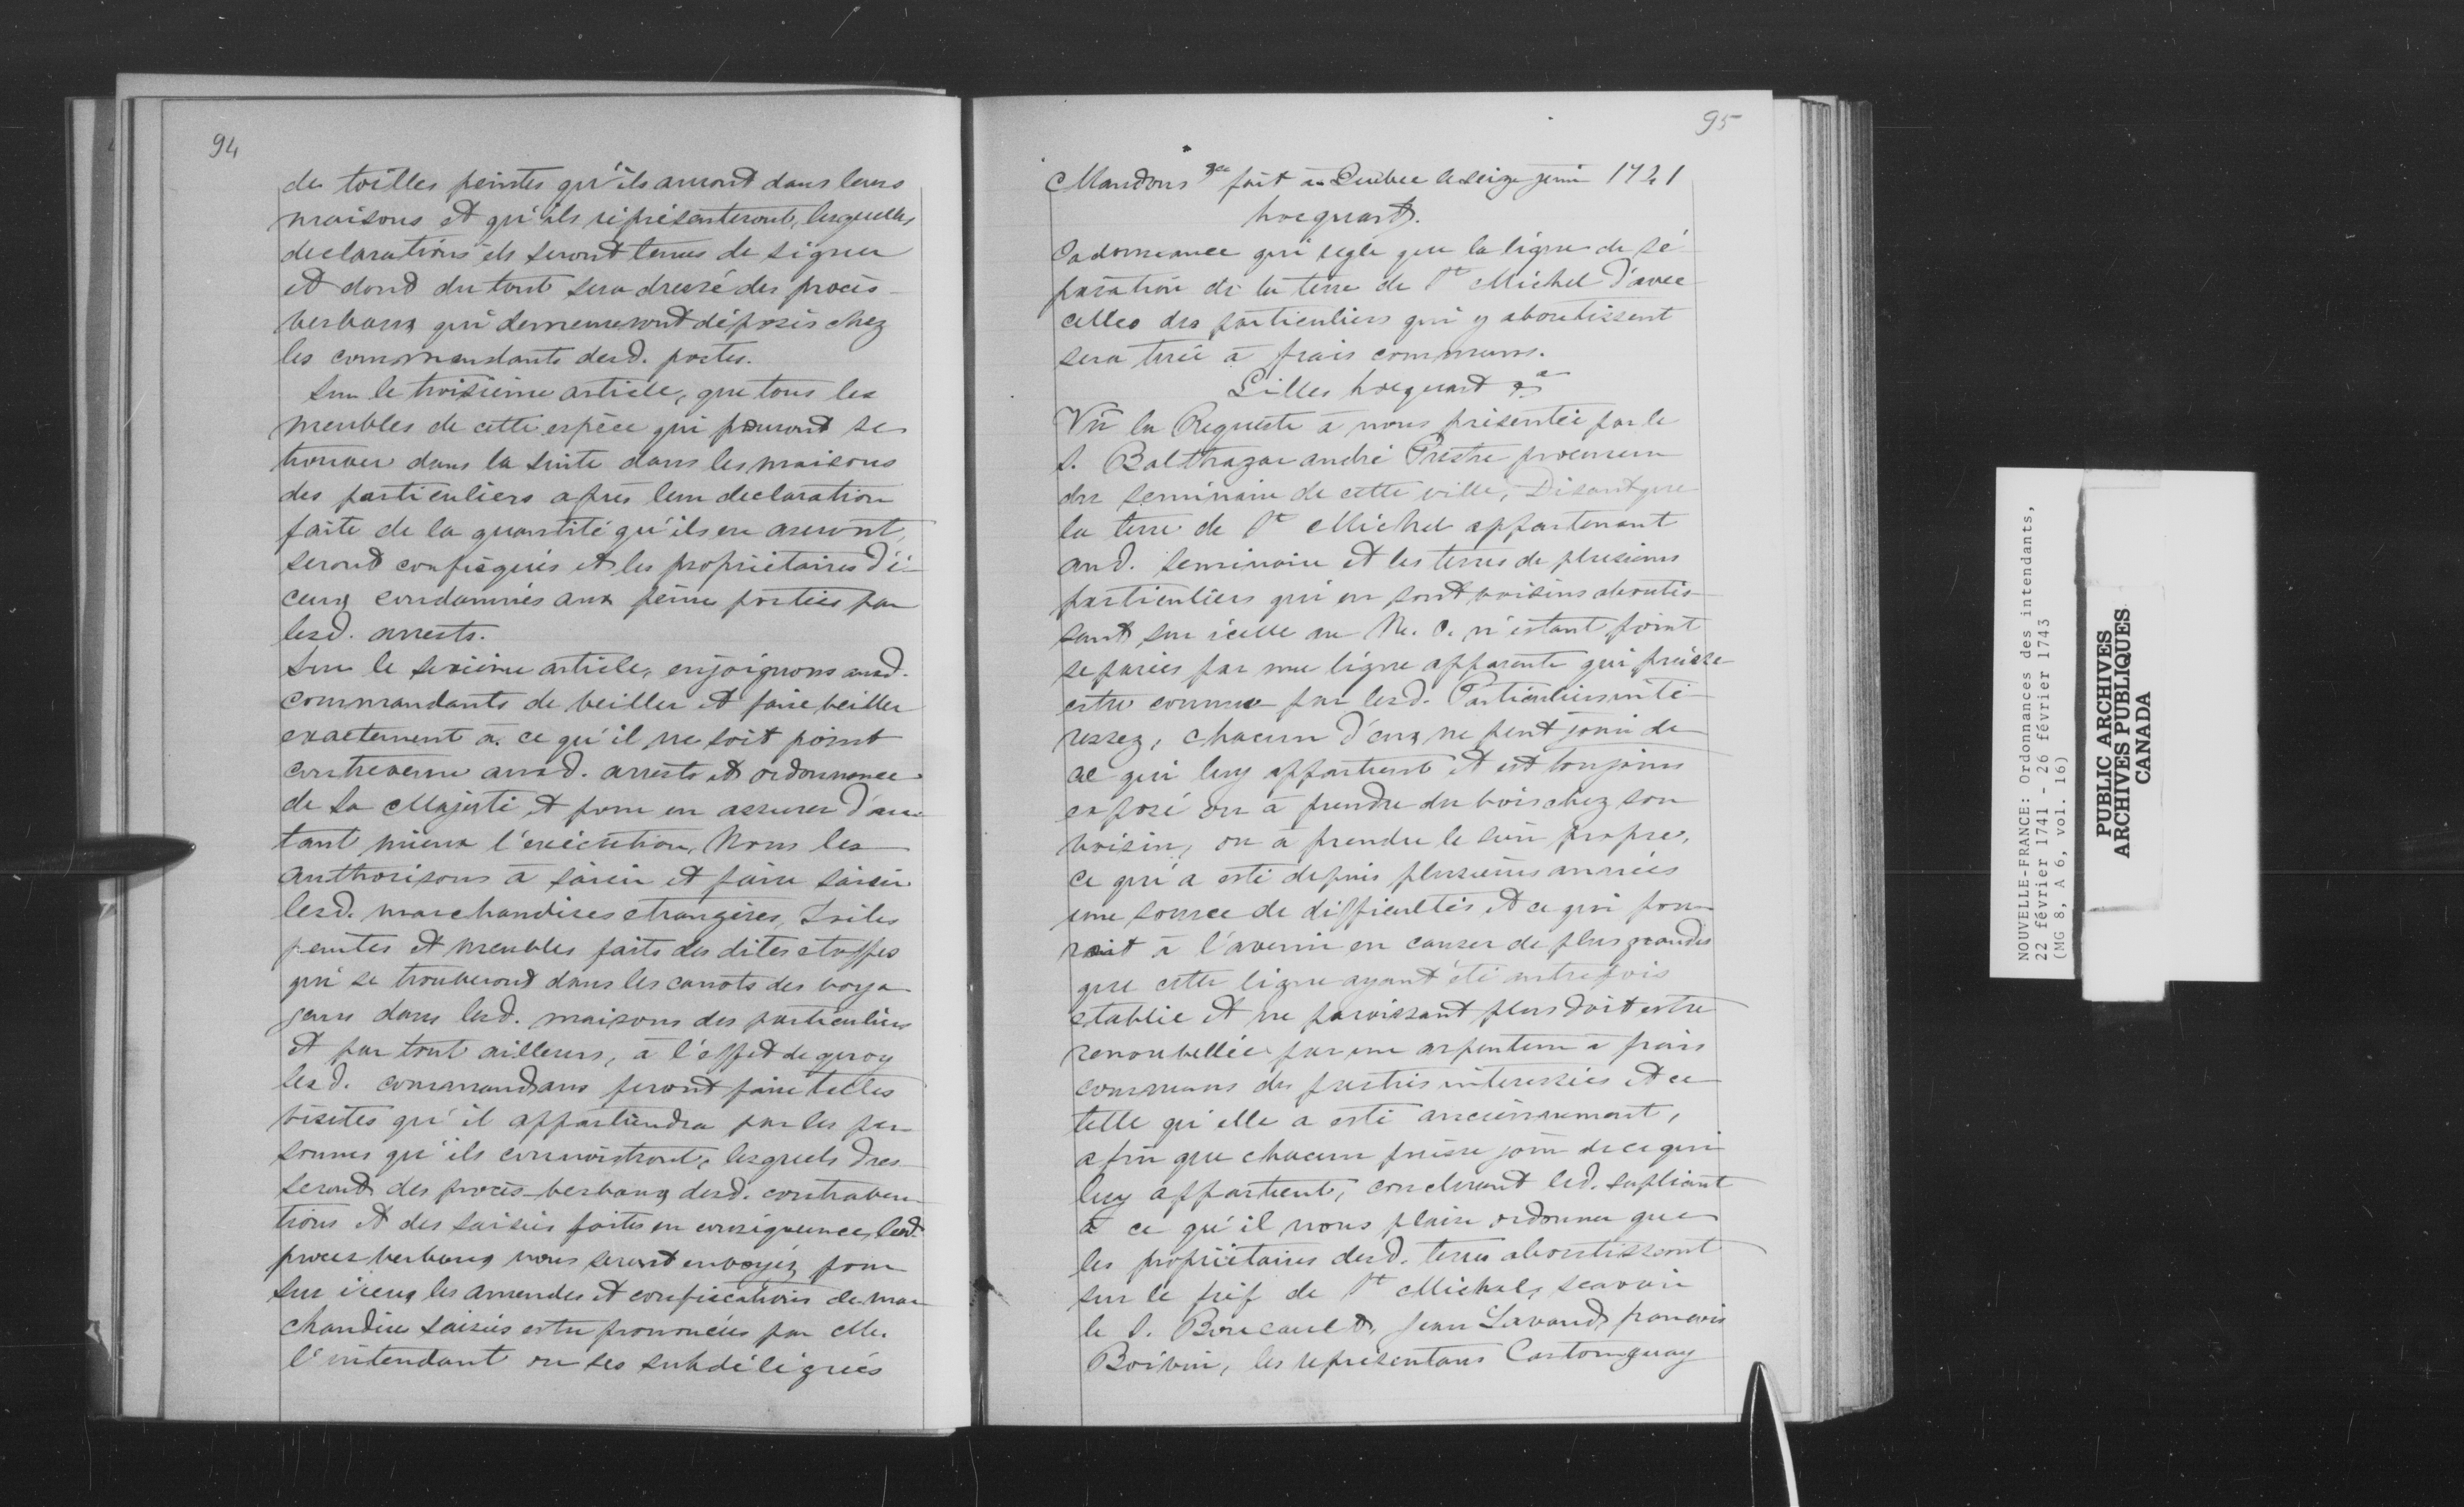 94
de toilles peintes qu'ils auront dans leurs
maisons et qu'ils représenteront, lesquelles
declarations ils seront tenus de signer
et dond du tout sera dressé des procès-
verbaux qui demeureront déposés chez
les commandants desd. postes.
Sur le troisième article, que tous les
meubles de cette espèce qui pouront se
trouver dans la suite dans les maisons
des particuliers après leur declaration
faite de la quantité qu'ils en auront,
seront confisqués et les propriétaires d'i-
ceux condamnés aux peines portées par
lesd. arrests.
Sur le sixième article, enjoignons ausd.
commandants de veiller et faire veiller
exactement à ce qu'il ne soit point
contrevenu ausd. arrests et ordonnance
de Sa Majesté et pour en assurer d'au-
tant mieux l'exécution, Nous les
authorisons à saisir et faire saisir
lesd. marchandises etrangères, toiles
peintes et meubles faits des dites etoffes
qui se trouveront dans les canots des voya-
geurs dans lesd. maisons des particuliers
et par tout ailleurs, à l'effet de quoy
lesd. commandans feront faire telles
visites qu'il appartiendra par les per-
sonnes qu'ils connoistront, lesquels dres-
seront des procès-verbaux desd. contraven-
tions et des saisies faites en conséquence, lesd.
procès verbaux nous seront envoyéz pour
sur iceux les amendes et confiscations de mar-
chandise saisies estre prononcées par M.
l'intendant ou ses subdélégués
95
Mandons &ca fait à Québec le seize juin 1741
hocquart.
Ordonnance qui regle que la ligne de sé-
paration de la terre de St Michel d'avec
celles des particuliers qui y aboutissent
sera tirée à frais communs.
Gilles hocquart &a
Vû la Requeste à nous présentée par le
S. Balthazar andré Prestre procureur
du seminaire de cette ville, Disant que
la terre de St Michel appartenant
aud. seminaire et les terres de plusieurs
particuliers qui en sont voisins aboutis-
sant sur icelle au N. O. n'estant point
separées par une ligne apparente qui puisse
estre connue par lesd. Particuliers inté-
ressez, chacun d'eux ne peut jouir de
ce qui luy appartient et est toujours
exposé ou à prendre du bois chez son
voisin, ou à prendre le sien propre,
ce qui a esté depuis plusieurs années
une source de difficultés et ce qui pour-
rait à l'avenir en causer de plus grandes
que cette ligne ayant été autrefois
etablie et ne paroissant plus doit estre
renouvellée par un arpenteur à frais
communs des parties interessées et ce
telle qu'elle a esté anciennement,
afin que chacun puisse jouir de ce qui
luy appartient, concluant led. supliant
à ce qu'il nous plaise ordonner que
les propriétaires desd. terres aboutissant
sur le fief de St Michel, scavoir
le S. Boucault, Jean Lavaud, francois
Boivin, les representans Castonguay
NOUVELLE-FRANCE: Ordonnances des intendants,
22 février 1741 - 26 février 1743
(MG 8, A 6, vol. 16)
PUBLIC ARCHIVES
ARCHIVES PUBLIQUES
CANADA